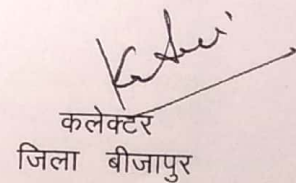 कलेक्टर
जिला बीजापुर